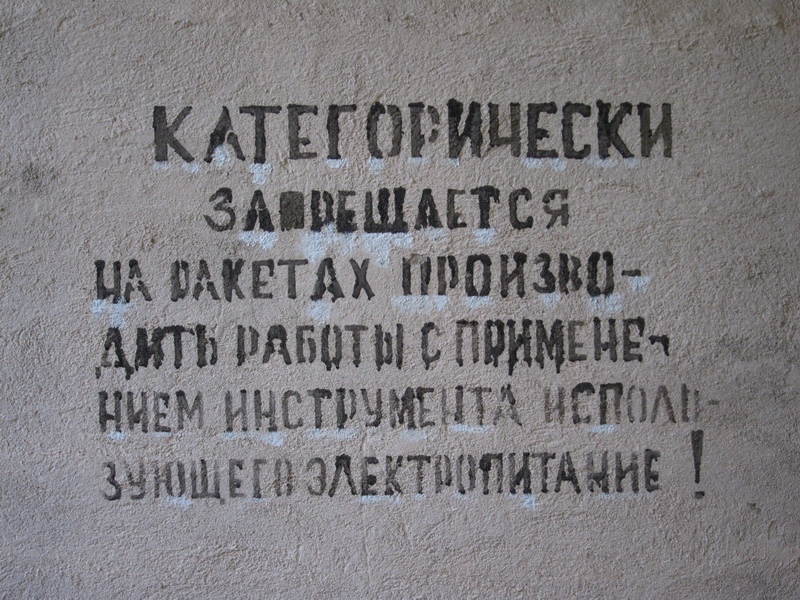 КАТЕГОРИЧЕСКИ
ЗАПРЕЩАЕТСЯ
НА РАКЕТАХ ПРОИЗВО-
ДИТЬ РАБОТЫ С ПРИМЕНЕ-
НИЕМ ИНСТРУМЕНТА ИСПОЛЬ-
ЗУЮЩЕГО ЭЛЕКТРОПИТАНИЕ!